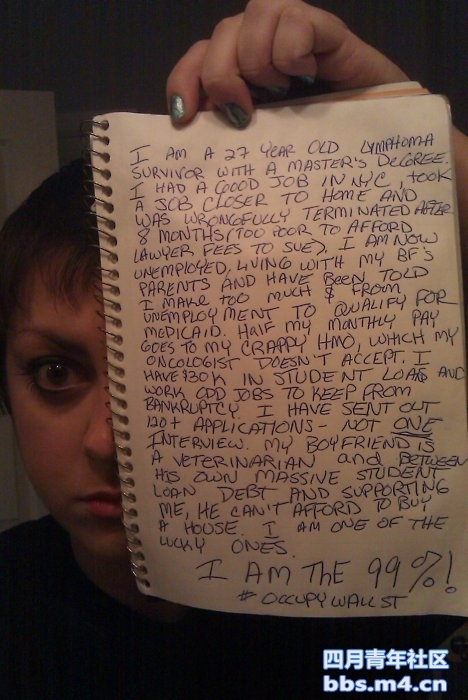 I AM A 27 YEAR OLD LYMPHOMA
SURVIVOR WITH A MASTER'S DEGREE.
I HAD A GOOD JOB IN NYC, TOOK
A JOB CLOSER TO HOME AND
WAS WRONGFULLY TERMINATED AFTER
8 MONTHS (TOO POOR TO AFFORD
LAWYER FEES TO SUE). I AM NOW
UNEMPLOYED, LIVING WITH MY BF'S
PARENTS AND HAVE BEEN TOLD
I MAKE TOO MUCH $ FROM
UNEMPLOYMENT TO QUALIFY FOR
MEDICAID. HALF MY MONTHLY PAY
GOES TO MY CRAPPY HMO, WHICH MY
ONCOLOGIST DOESN'T ACCEPT. I
HAVE $30K IN STUDENT LOAN AND
WORK ODD JOBS TO KEEP FROM
BANKRUPTCY. I HAVE SENT OUT
120+ APPLICATIONS - NOT ONE
INTERVIEW. MY BOYFRIEND IS
A VETERINARIAN and BETWEEN
HIS OWN MASSIVE STUDENT
LOAN DEBT AND SUPPORTING
ME, HE CAN'T AFFORD TO BUY
A HOUSE. I AM ONE OF THE
LUCKY ONES.
I AM THE 99%!
# OCCUPYWALLST
四月青年社区
bbs.m4.cn